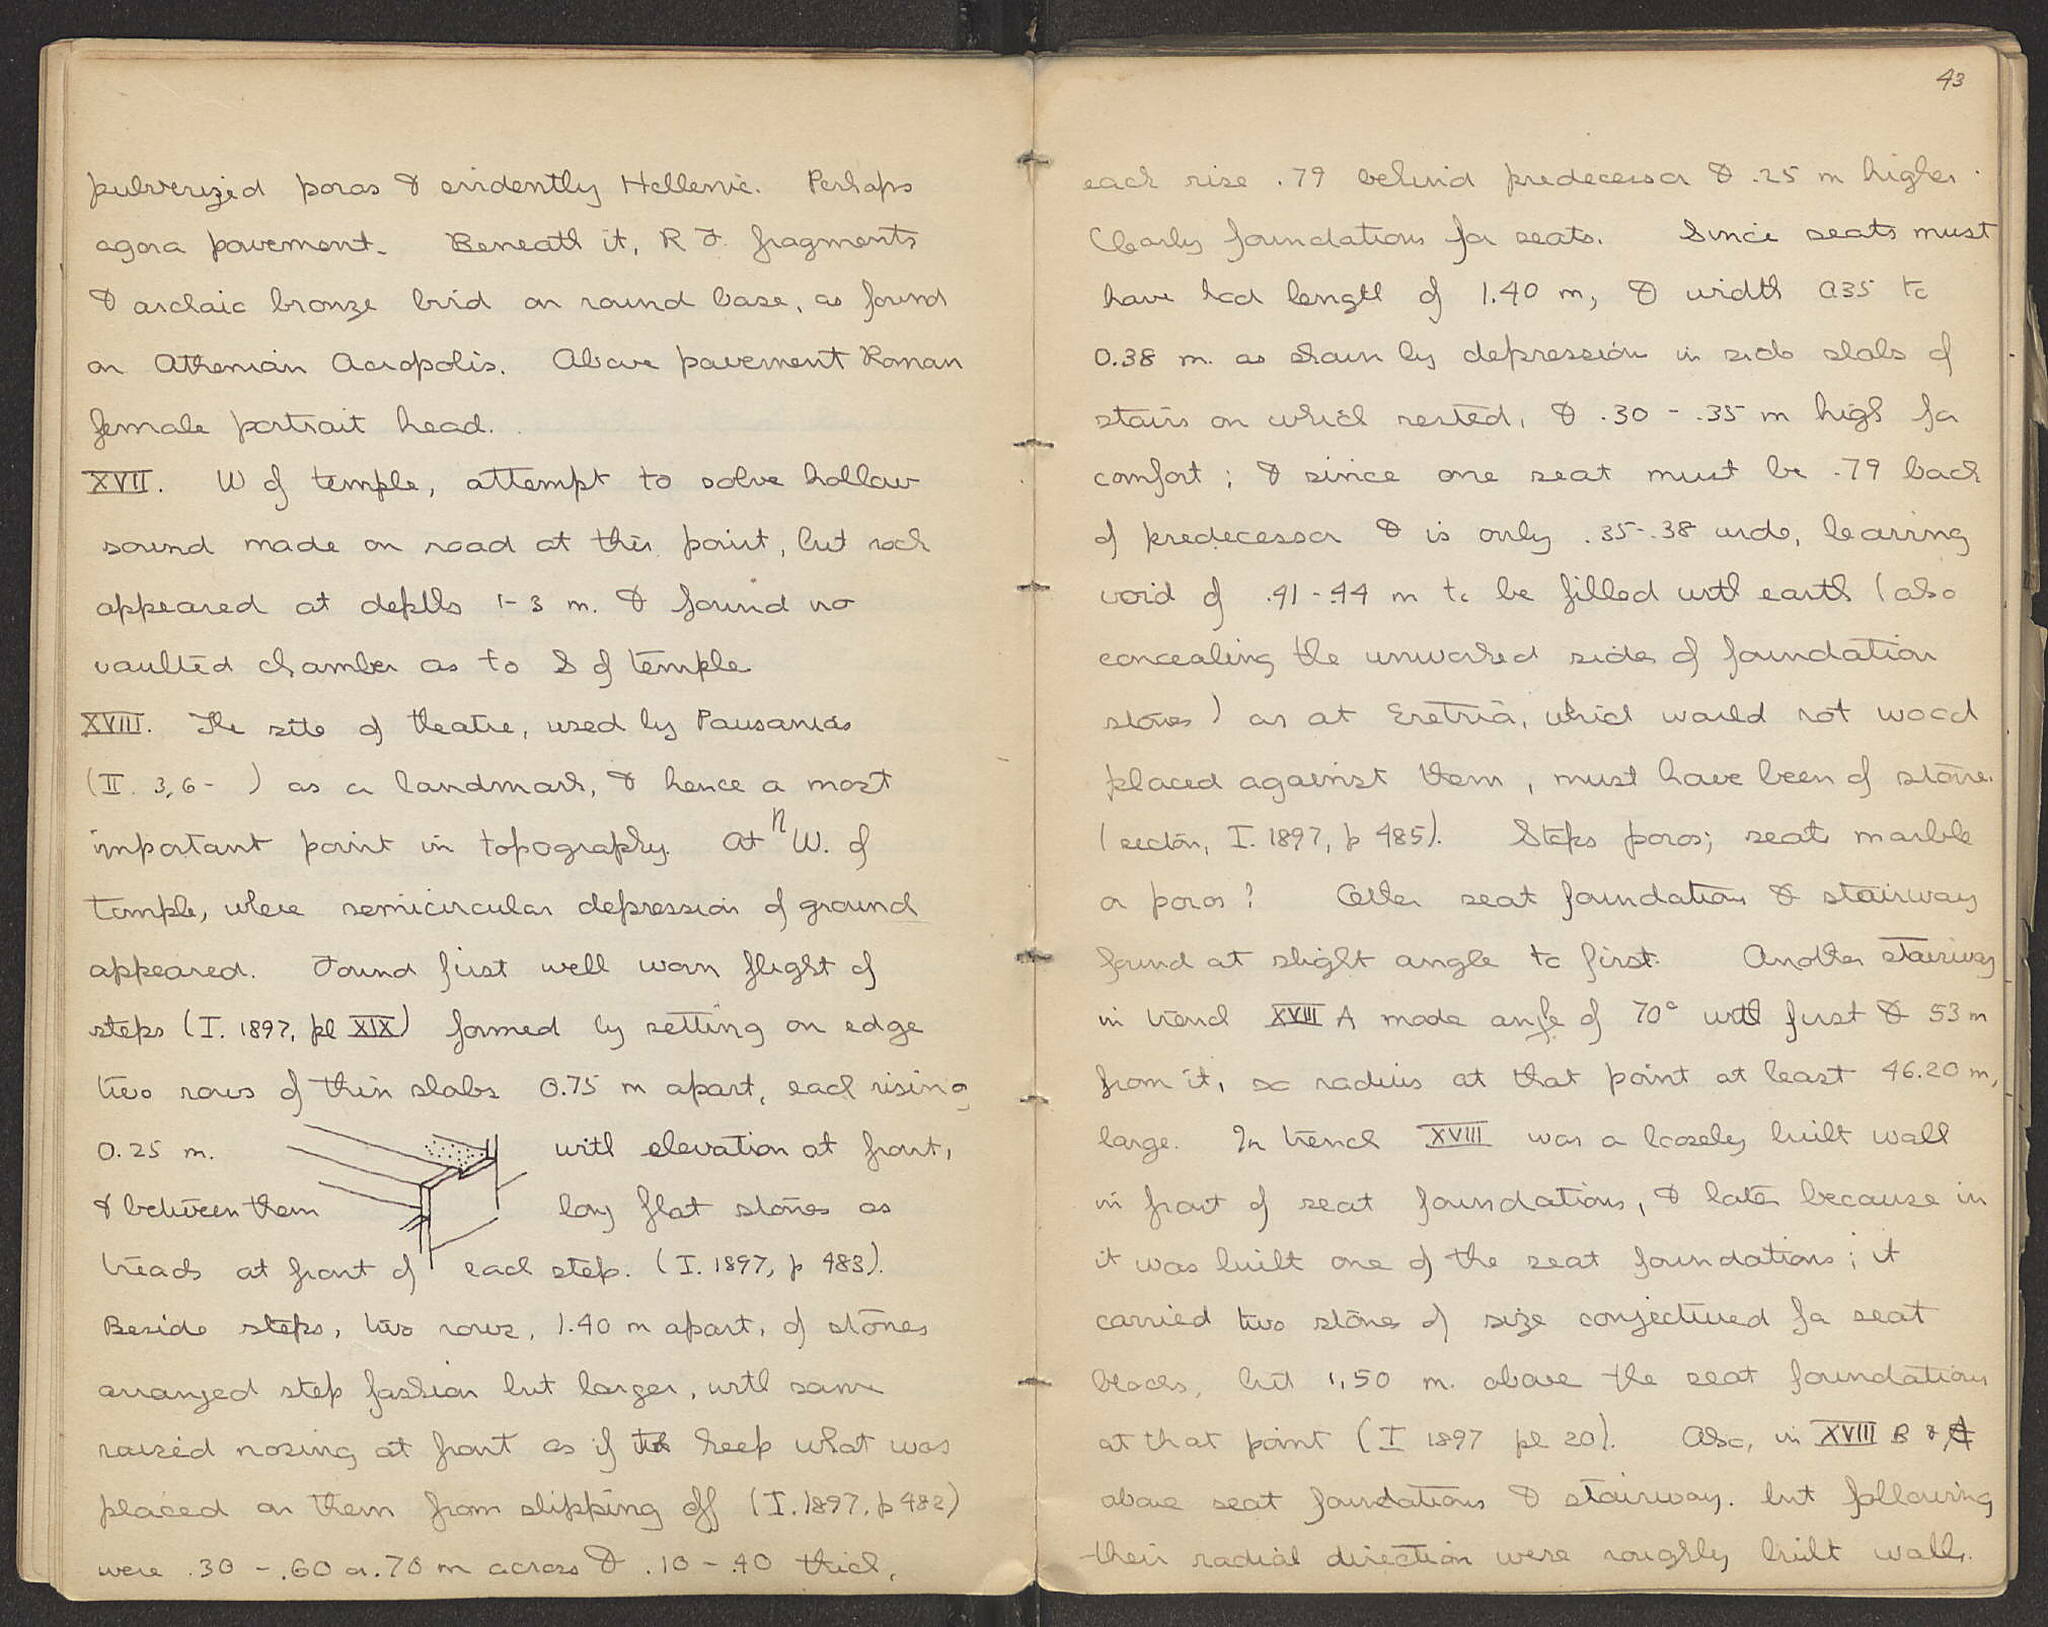 pulverized poros & evidently Hellenic. Perhaps
agora pavement. Beneath it, R F. fragments
& archaic bronze bird on round base, as found
on Athenian Acropolis. Above pavement Roman
female portrait head.
XVII. W of temple, attempt to solve hollow
sound made on road at this point, but rock
appeared at depths 1-3 m. & found no
vaulted chamber as to S of temple
XVIII. The site of theatre, used by Pausanias
(II. 3,6- ) as a landmark, & hence a most
important point in topography. At nW. of
temple, where semicircular depression of ground
appeared. Found first well worn flight of
steps (I. 1897, pl XIX) formed by setting on edge
two rows of thin slabs 0.75 m apart, each rising
0.25 m. with elevation at front,
& between them long flat stones as
treads at front of each step. (I. 1897, p 483).
Beside steps, two rows, 1.40 m apart, of stones
arranged step fashion but larger, with same
raised nosing at front as if to keep what was
placed on them from slipping off (I. 1897, p 482)
were .30 - .60 or .70 m across & .10 - .40 thick,
43
each rise .79 behind predecessor & .25 m higher.
Clearly foundations for seats. Since seats must
have had length of 1.40 m, & width 0.35 to
0.38 m. as shown by depression in side slabs of
stairs on which rested, & .30 - .35 m high for
comfort; & since one seat must be .79 back
of predecessor & is only .35-.38 wide, leaving
void of .41-.44 m to be filled with earth (also
concealing the unworked sides of foundation
stones) as at Eretria, which would rot wood
placed against them, must have been of stone.
(section, I. 1897, p 485). Steps poros; seats marble
or poros? Other seat foundations & stairway
found at slight angle to first. Another stairway
in trench XVIII A made angle of 70° with first & 53 m
from it, so radius at that point at least 46.20 m,
large. In trench XVIII was a loosely built wall
in front of seat foundations, & later because in
it was built one of the seat foundations; it
carried two stones of size conjectured for seat
blocks, but 1,50 m. above the seat foundations
at that point (I 1897 pl 20). Also, in XVIII B & A
above seat foundations & stairway. but following
their radial direction were roughly built walls.